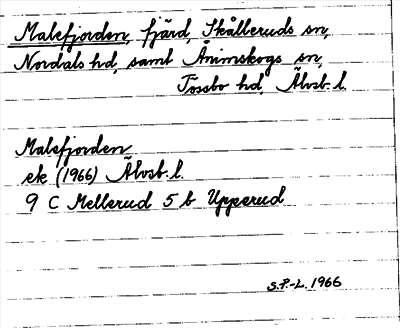 Malefjorden, fjärd, Skålleruds sn,
Nordals hd, samt Ånimskogs sn,
Tössbo hd, Älvsb. l.
Malefjorden
ek (1966) Älvsb. l.
9 C Mellerud 5 b Upperud
S.P.-L. 1966